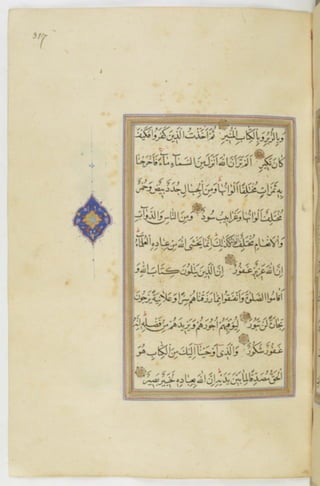 317
وَبِالزُّبُرِ وَبِالْكِتَابِ الْمُنِيرِ ثُمَّ أَخَذْتُ الَّذِينَ كَفَرُوا فَكَيْفَ
كَانَ نَكِيرِ أَلَمْ تَرَ أَنَّ اللَّهَ أَنْزَلَ مِنَ السَّمَاءِ مَاءً فَأَخْرَجْنَا
بِهِ ثَمَرَاتٍ مُخْتَلِفًا أَلْوَانُهَا وَمِنَ الْجِبَالِ جُدَدٌ بِيضٌ وَحُمْرٌ
مُخْتَلِفٌ أَلْوَانُهَا وَغَرَابِيبُ سُودٌ وَمِنَ النَّاسِ وَالدَّوَابِّ
وَالْأَنْعَامِ مُخْتَلِفٌ أَلْوَانُهُ كَذَلِكَ إِنَّمَا يَخْشَى اللَّهَ مِنْ عِبَادِهِ الْعُلَمَاءُ
إِنَّ اللَّهَ عَزِيزٌ غَفُورٌ إِنَّ الَّذِينَ يَتْلُونَ كِتَابَ اللَّهِ وَ
أَقَامُوا الصَّلَوةَ وَأَنْفَقُوا مِمَّا رَزَقْنَاهُمْ سِرًّا وَعَلَانِيَةً يَرْجُونَ
تِجَارَةً لَنْ تَبُورَ لِيُوَفِّيَهُمْ أُجُورَهُمْ وَيَزِيدَهُمْ مِنْ فَضْلِهِ إِنَّهُ
غَفُورٌ شَكُورٌ وَالَّذِي أَوْحَيْنَا إِلَيْكَ مِنَ الْكِتَابِ هُوَ
الْحَقُّ مُصَدِّقًا لِمَا بَيْنَ يَدَيْهِ إِنَّ اللَّهَ بِعِبَادِهِ لَخَبِيرٌ بَصِيرٌ